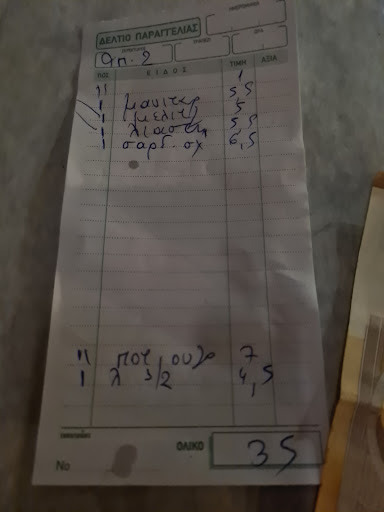 ΔΕΛΤΙΟ ΠΑΡΑΓΓΕΛΙΑΣ
απ. 2
ΠΟΣ. ΕΙΔΟΣ ΤΙΜΗ ΑΞΙΑ
11 1
1 μανιταρ 5,5
1 μελιτζ 5
1 λιαστη 5,5
1 σαρδ. σχ 6,5
11 ποτ ουζο 7
1 λ 1/2 4,5
ΟΛΙΚΟ 35
No